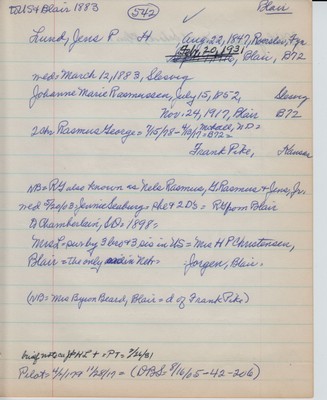 to US4 Blair 1883
542
Blair
Lund, Jens P H Aug. 22, 1847, Fyn
Feb. 20, 1931, Blair, B72
med: March 12, 1883, Slesvig
Johanne Marie Rasmussen, July 15, 1852, Slesvig
Nov. 24, 1917, Blair B72
2 ch: Rasmus George = 7/15/78 - ND = B72 =
Frank Pike, Kansas
NB = RG also known as Nels Rasmus, G. Rasmus & Jens, Jr.
med Jennie Seaburg = she & 2 DS = RG from Blair
to Chamberlain, SD = 1898 =
Mrs L = sur by 3 bro & 3 sis in US = Mrs H P Christensen,
Blair = the only in Neb = Jorgen, Blair =
(NB = Mrs Byron Beard, Blair = d of Frank Pike)
brief not on ptHL + = PT = 2/26/31
Pilot = 11/28/17 = (DBS = 8/16/05 - 42 - 206)